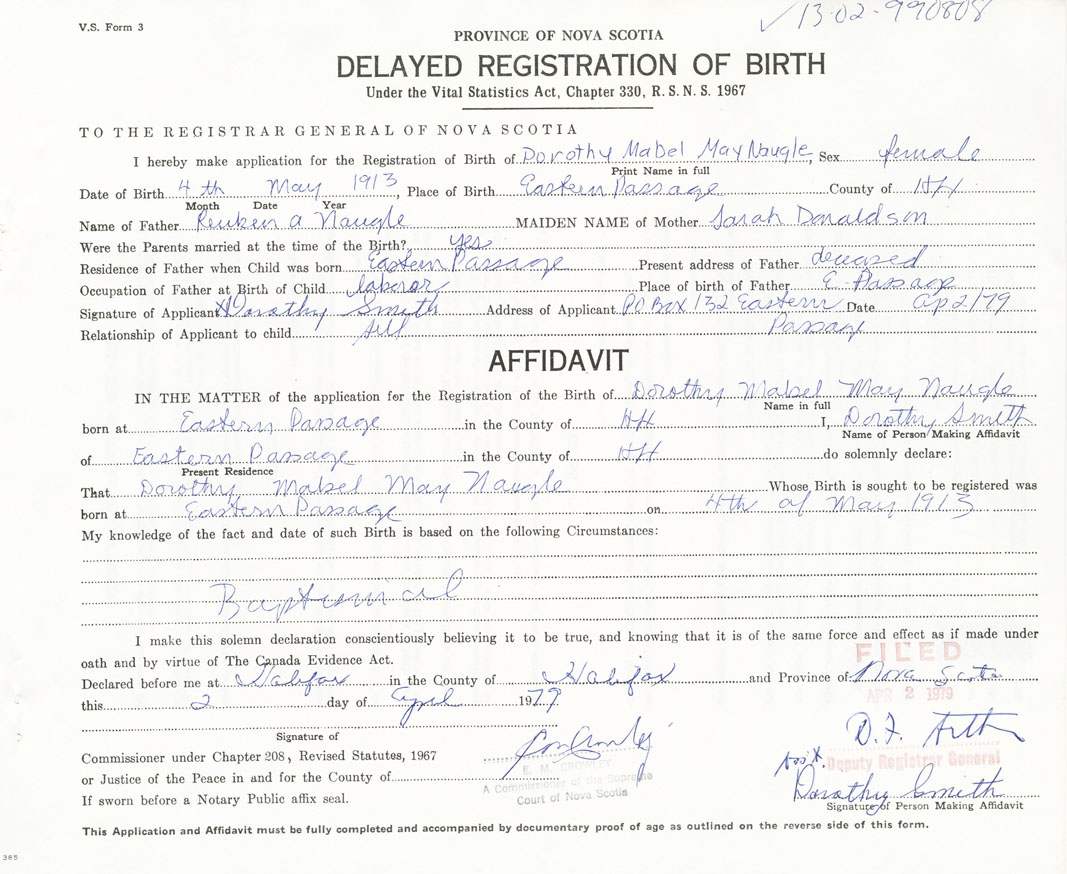 V.S. Form 3
✓ 13-02-990808
PROVINCE OF NOVA SCOTIA
DELAYED REGISTRATION OF BIRTH
Under the Vital Statistics Act, Chapter 330, R.S.N.S. 1967
TO THE REGISTRAR GENERAL OF NOVA SCOTIA
I hereby make application for the Registration of Birth of Dorothy Mabel May Naugle, Sex female
Print Name in full
Date of Birth 4th May 1913, Place of Birth Eastern Passage County of HFX
Month Date Year
Name of Father Reuben A Naugle MAIDEN NAME of Mother Sarah Donaldson
Were the Parents married at the time of the Birth? yes
Residence of Father when Child was born Eastern Passage Present address of Father deceased
Occupation of Father at Birth of Child laborer Place of birth of Father E. Passage
Signature of Applicant X Dorothy Smith Address of Applicant PO Box 132 Eastern Date Ap 2/79
Passage
Relationship of Applicant to child
AFFIDAVIT
IN THE MATTER of the application for the Registration of the Birth of Dorothy Mabel May Naugle
Name in full
born at Eastern Passage in the County of HFX I, Dorothy Smith
Name of Person Making Affidavit
of Eastern Passage in the County of HFX do solemnly declare:
Present Residence
That Dorothy Mabel May Naugle Whose Birth is sought to be registered was
born at Eastern Passage on 4th of May 1913
My knowledge of the fact and date of such Birth is based on the following Circumstances:
Baptismal
I make this solemn declaration conscientiously believing it to be true, and knowing that it is of the same force and effect as if made under
oath and by virtue of The Canada Evidence Act.
FILED
Declared before me at Halifax in the County of Halifax and Province of Nova Scotia
APR 2 1979
this 2 day of April 1979
Signature of
Commissioner under Chapter 208, Revised Statutes, 1967
E. M. CROWLEY
or Justice of the Peace in and for the County of
A Commissioner of the Supreme
Court of Nova Scotia
If sworn before a Notary Public affix seal.
D. F. Arth
Asst. Deputy Registrar General
Dorothy Smith
Signature of Person Making Affidavit
This Application and Affidavit must be fully completed and accompanied by documentary proof of age as outlined on the reverse side of this form.
385